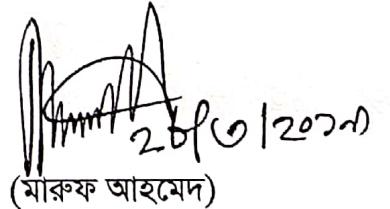 ২৮/৩/২০১৯
(মারুফ আহমেদ)